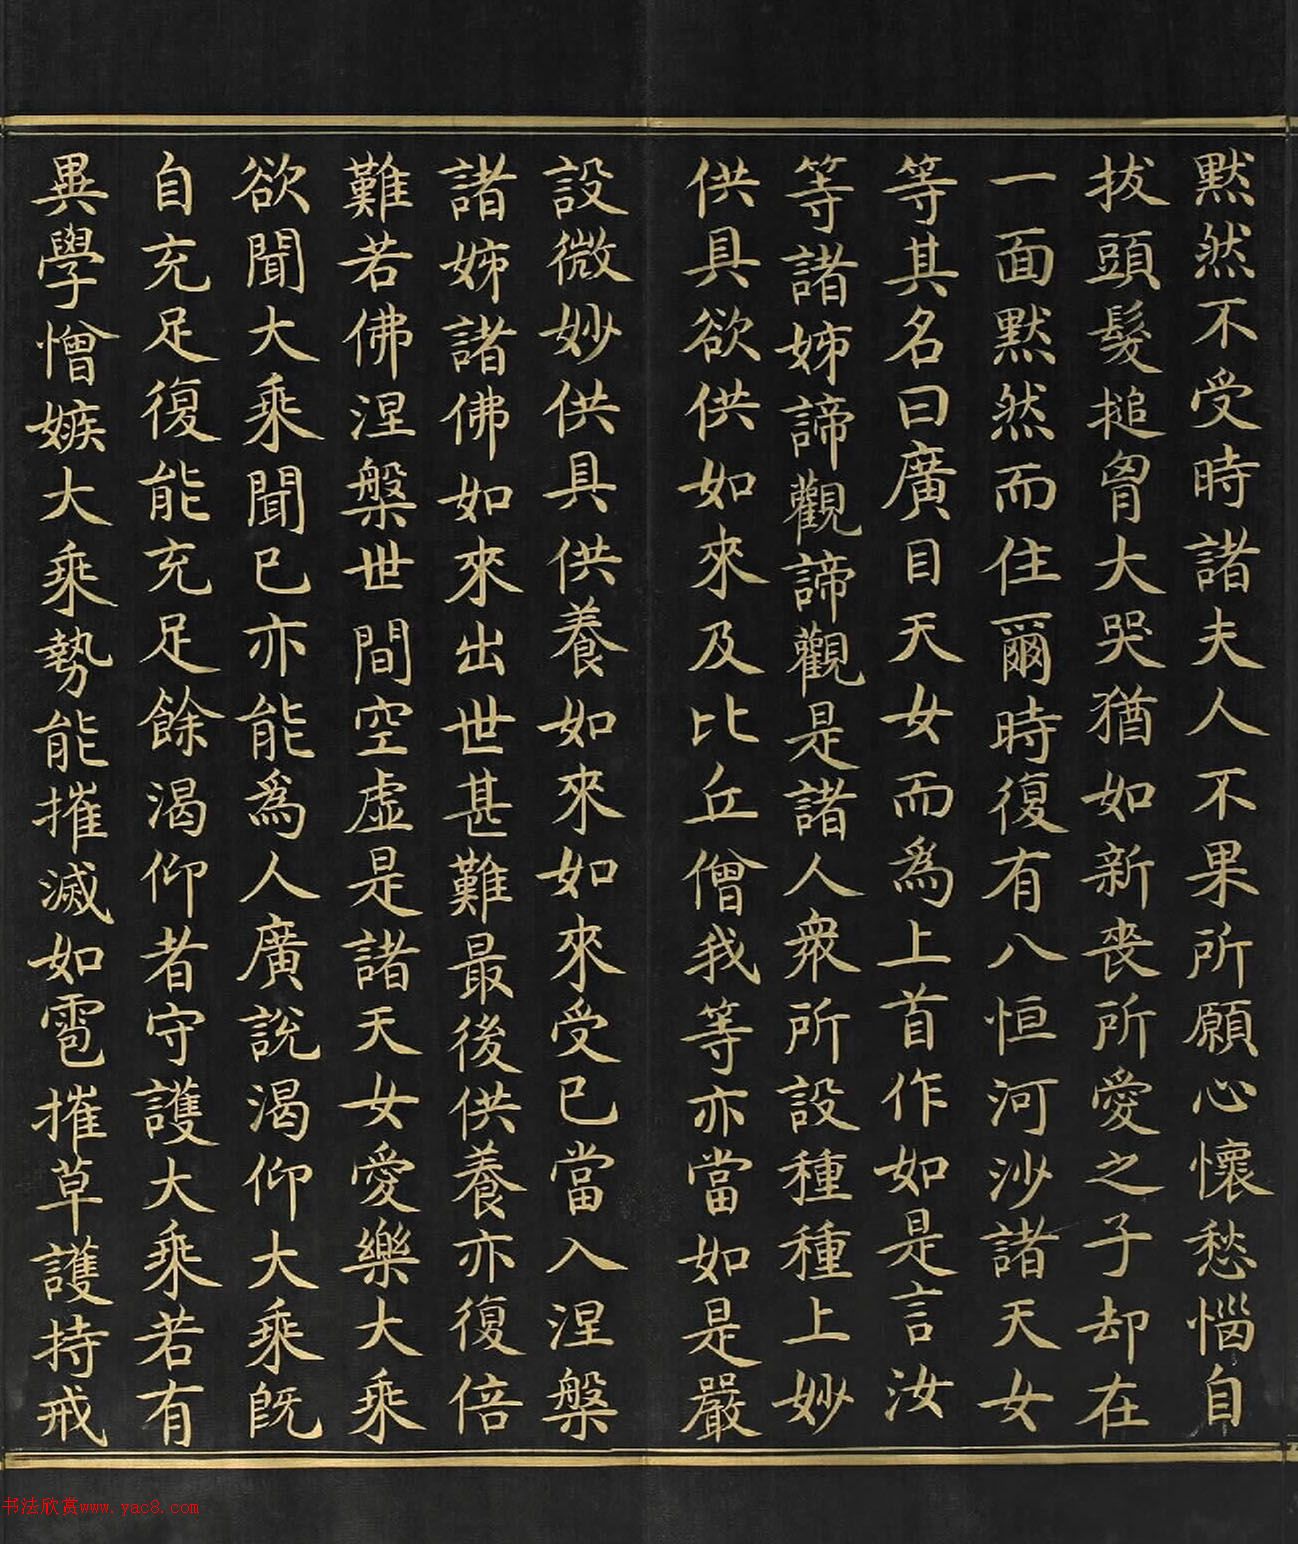 默然不受時諸夫人不果所願心懷愁惱自
拔頭髮搥胷大哭猶如新喪所愛之子却在
一面默然而住爾時復有八恒河沙諸天女
等其名曰廣目天女而為上首作如是言汝
等諸姊諦觀諦觀是諸人衆所設種種上妙
供具欲供如來及比丘僧我等亦當如是嚴
設微妙供具供養如來如來受已當入涅槃
諸姊諸佛如來出世甚難最後供養亦復倍
難若佛涅槃世間空虛是諸天女愛樂大乘
欲聞大乘聞已亦能為人廣說渴仰大乘既
自充足復能充足餘渴仰者守護大乘若有
異學憎嫉大乘勢能摧滅如雹摧草護持戒
书法欣赏www.yac8.com